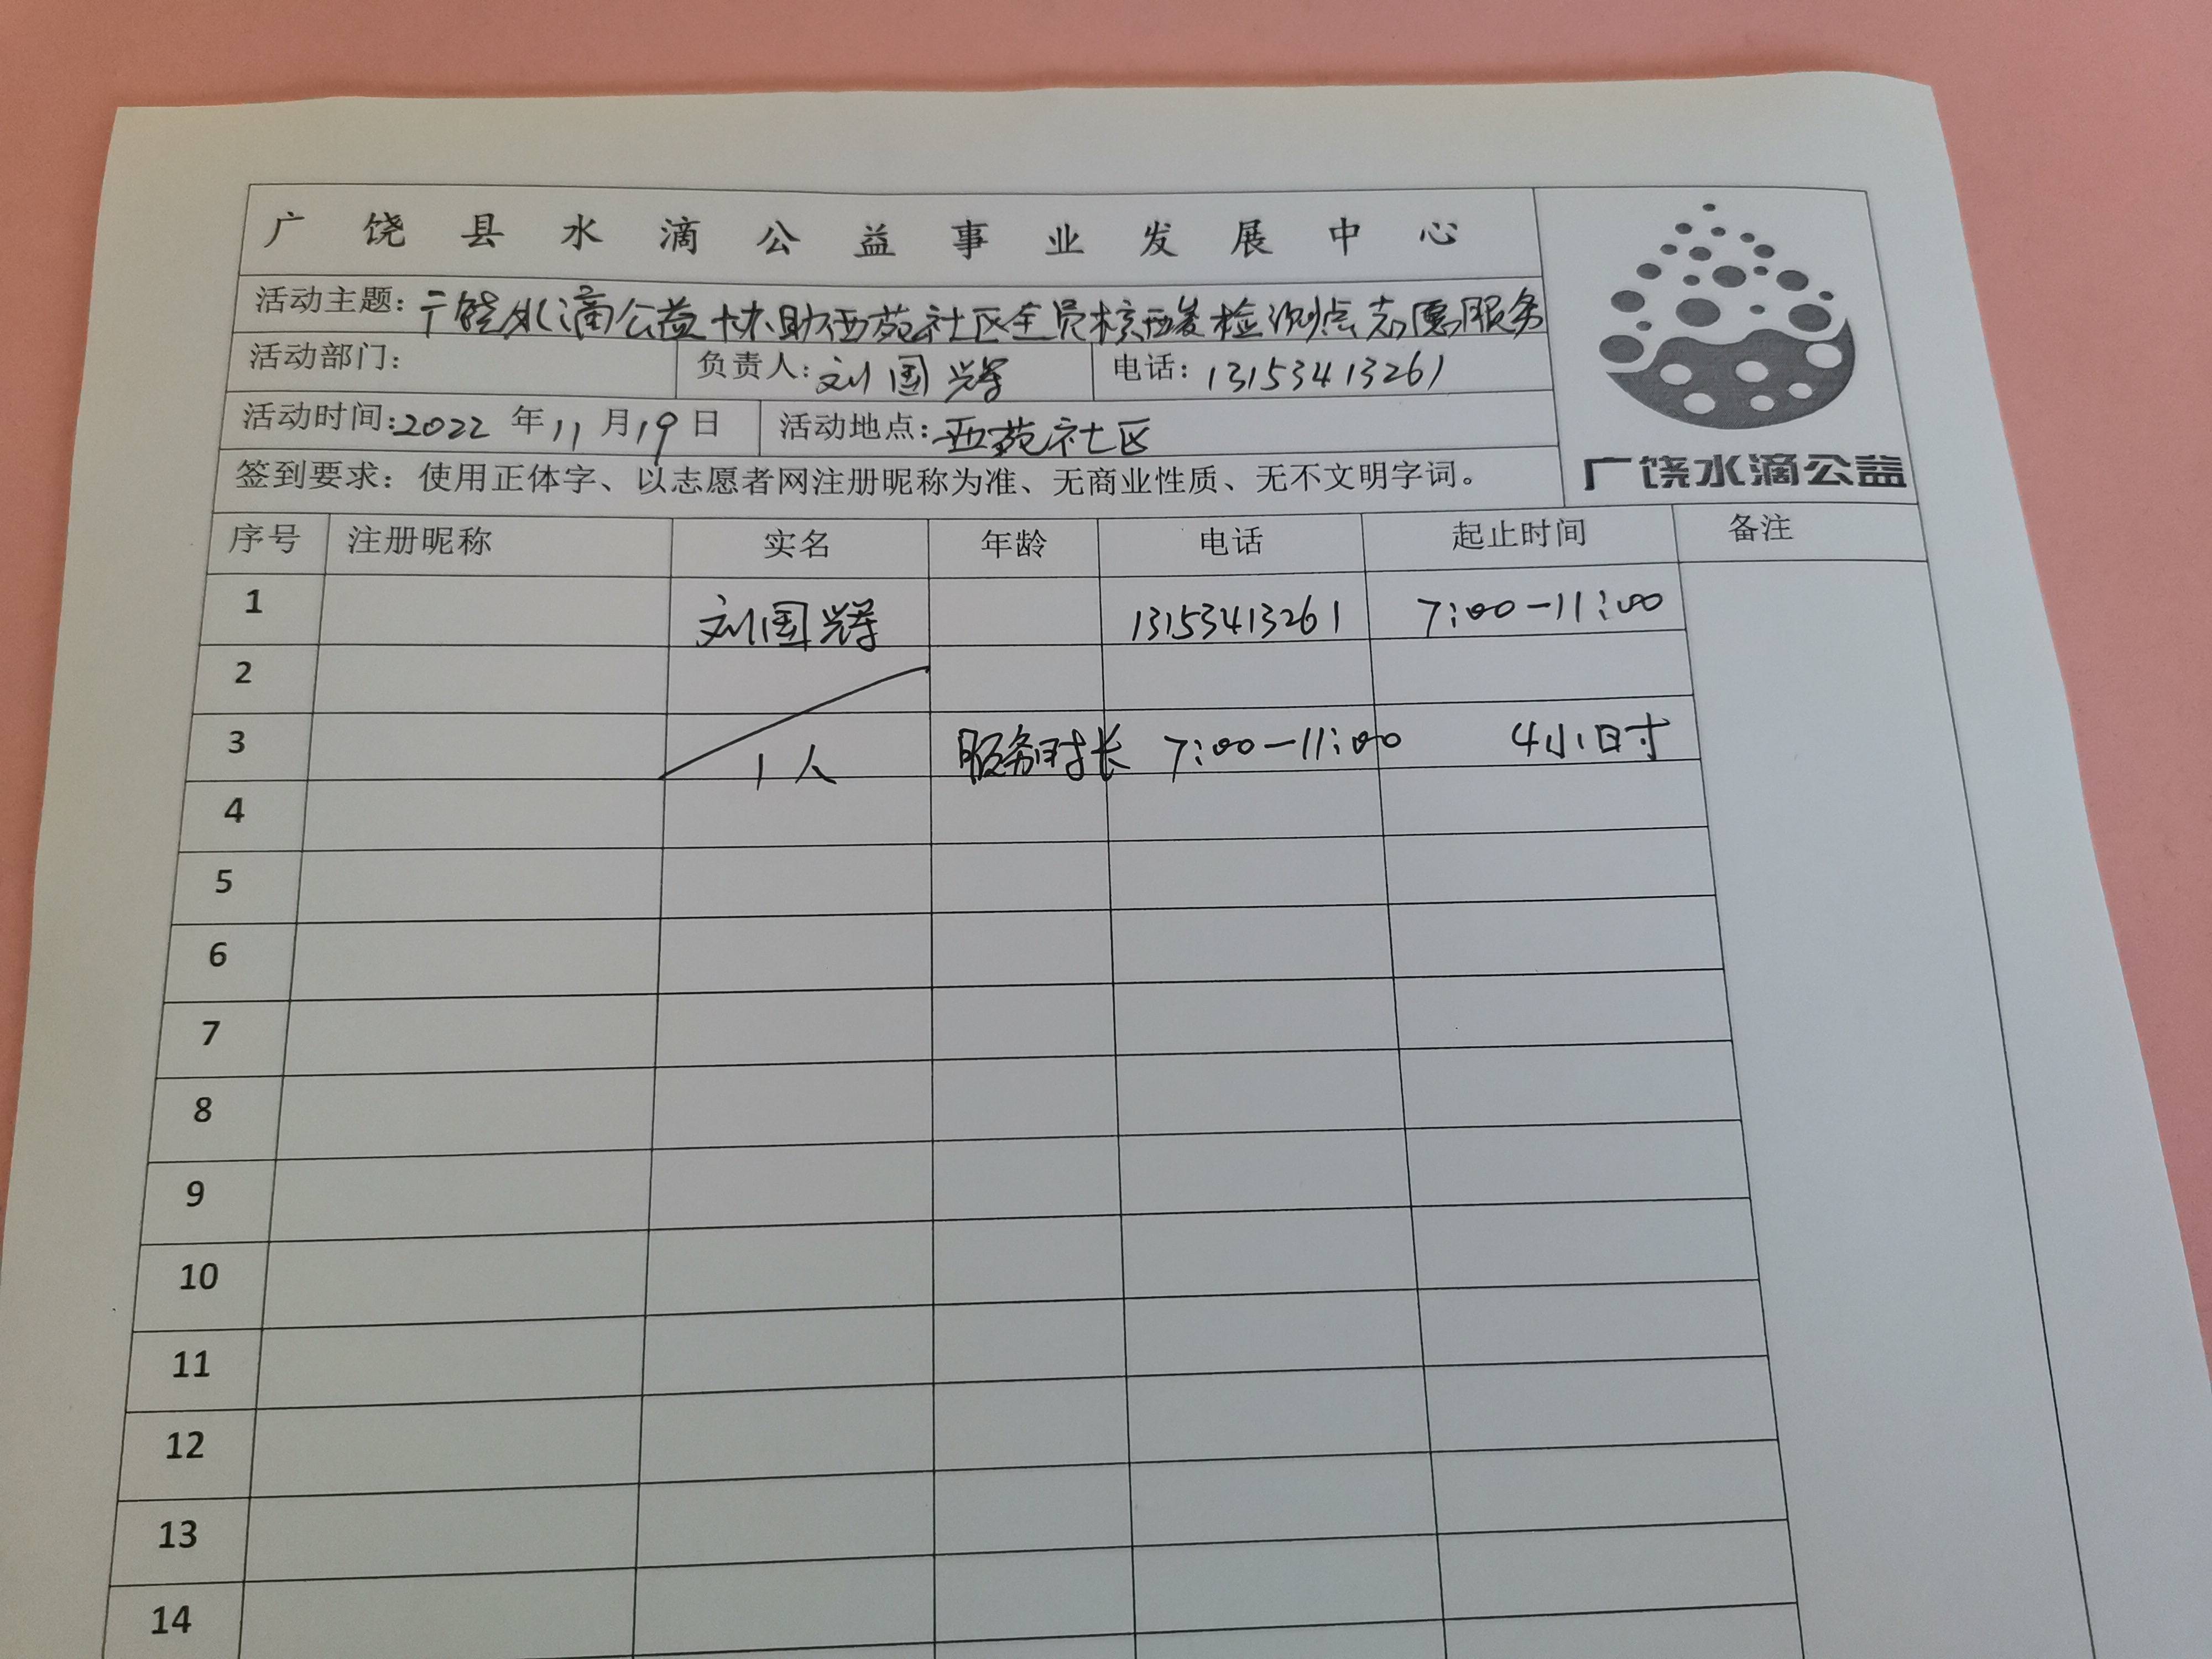 广饶县水滴公益事业发展中心
活动主题：广饶水滴公益协助西苑社区全员核酸检测点志愿服务
活动部门： 负责人：刘国辉 电话：13153413261
活动时间：2022年11月19日 活动地点：西苑社区
签到要求：使用正体字、以志愿者网注册昵称为准、无商业性质、无不文明字词。
广饶水滴公益
序号 注册昵称 实名 年龄 电话 起止时间 备注
1 刘国辉 13153413261 7:00-11:00
2
3 1人 服务时长 7:00-11:00 4小时
4
5
6
7
8
9
10
11
12
13
14